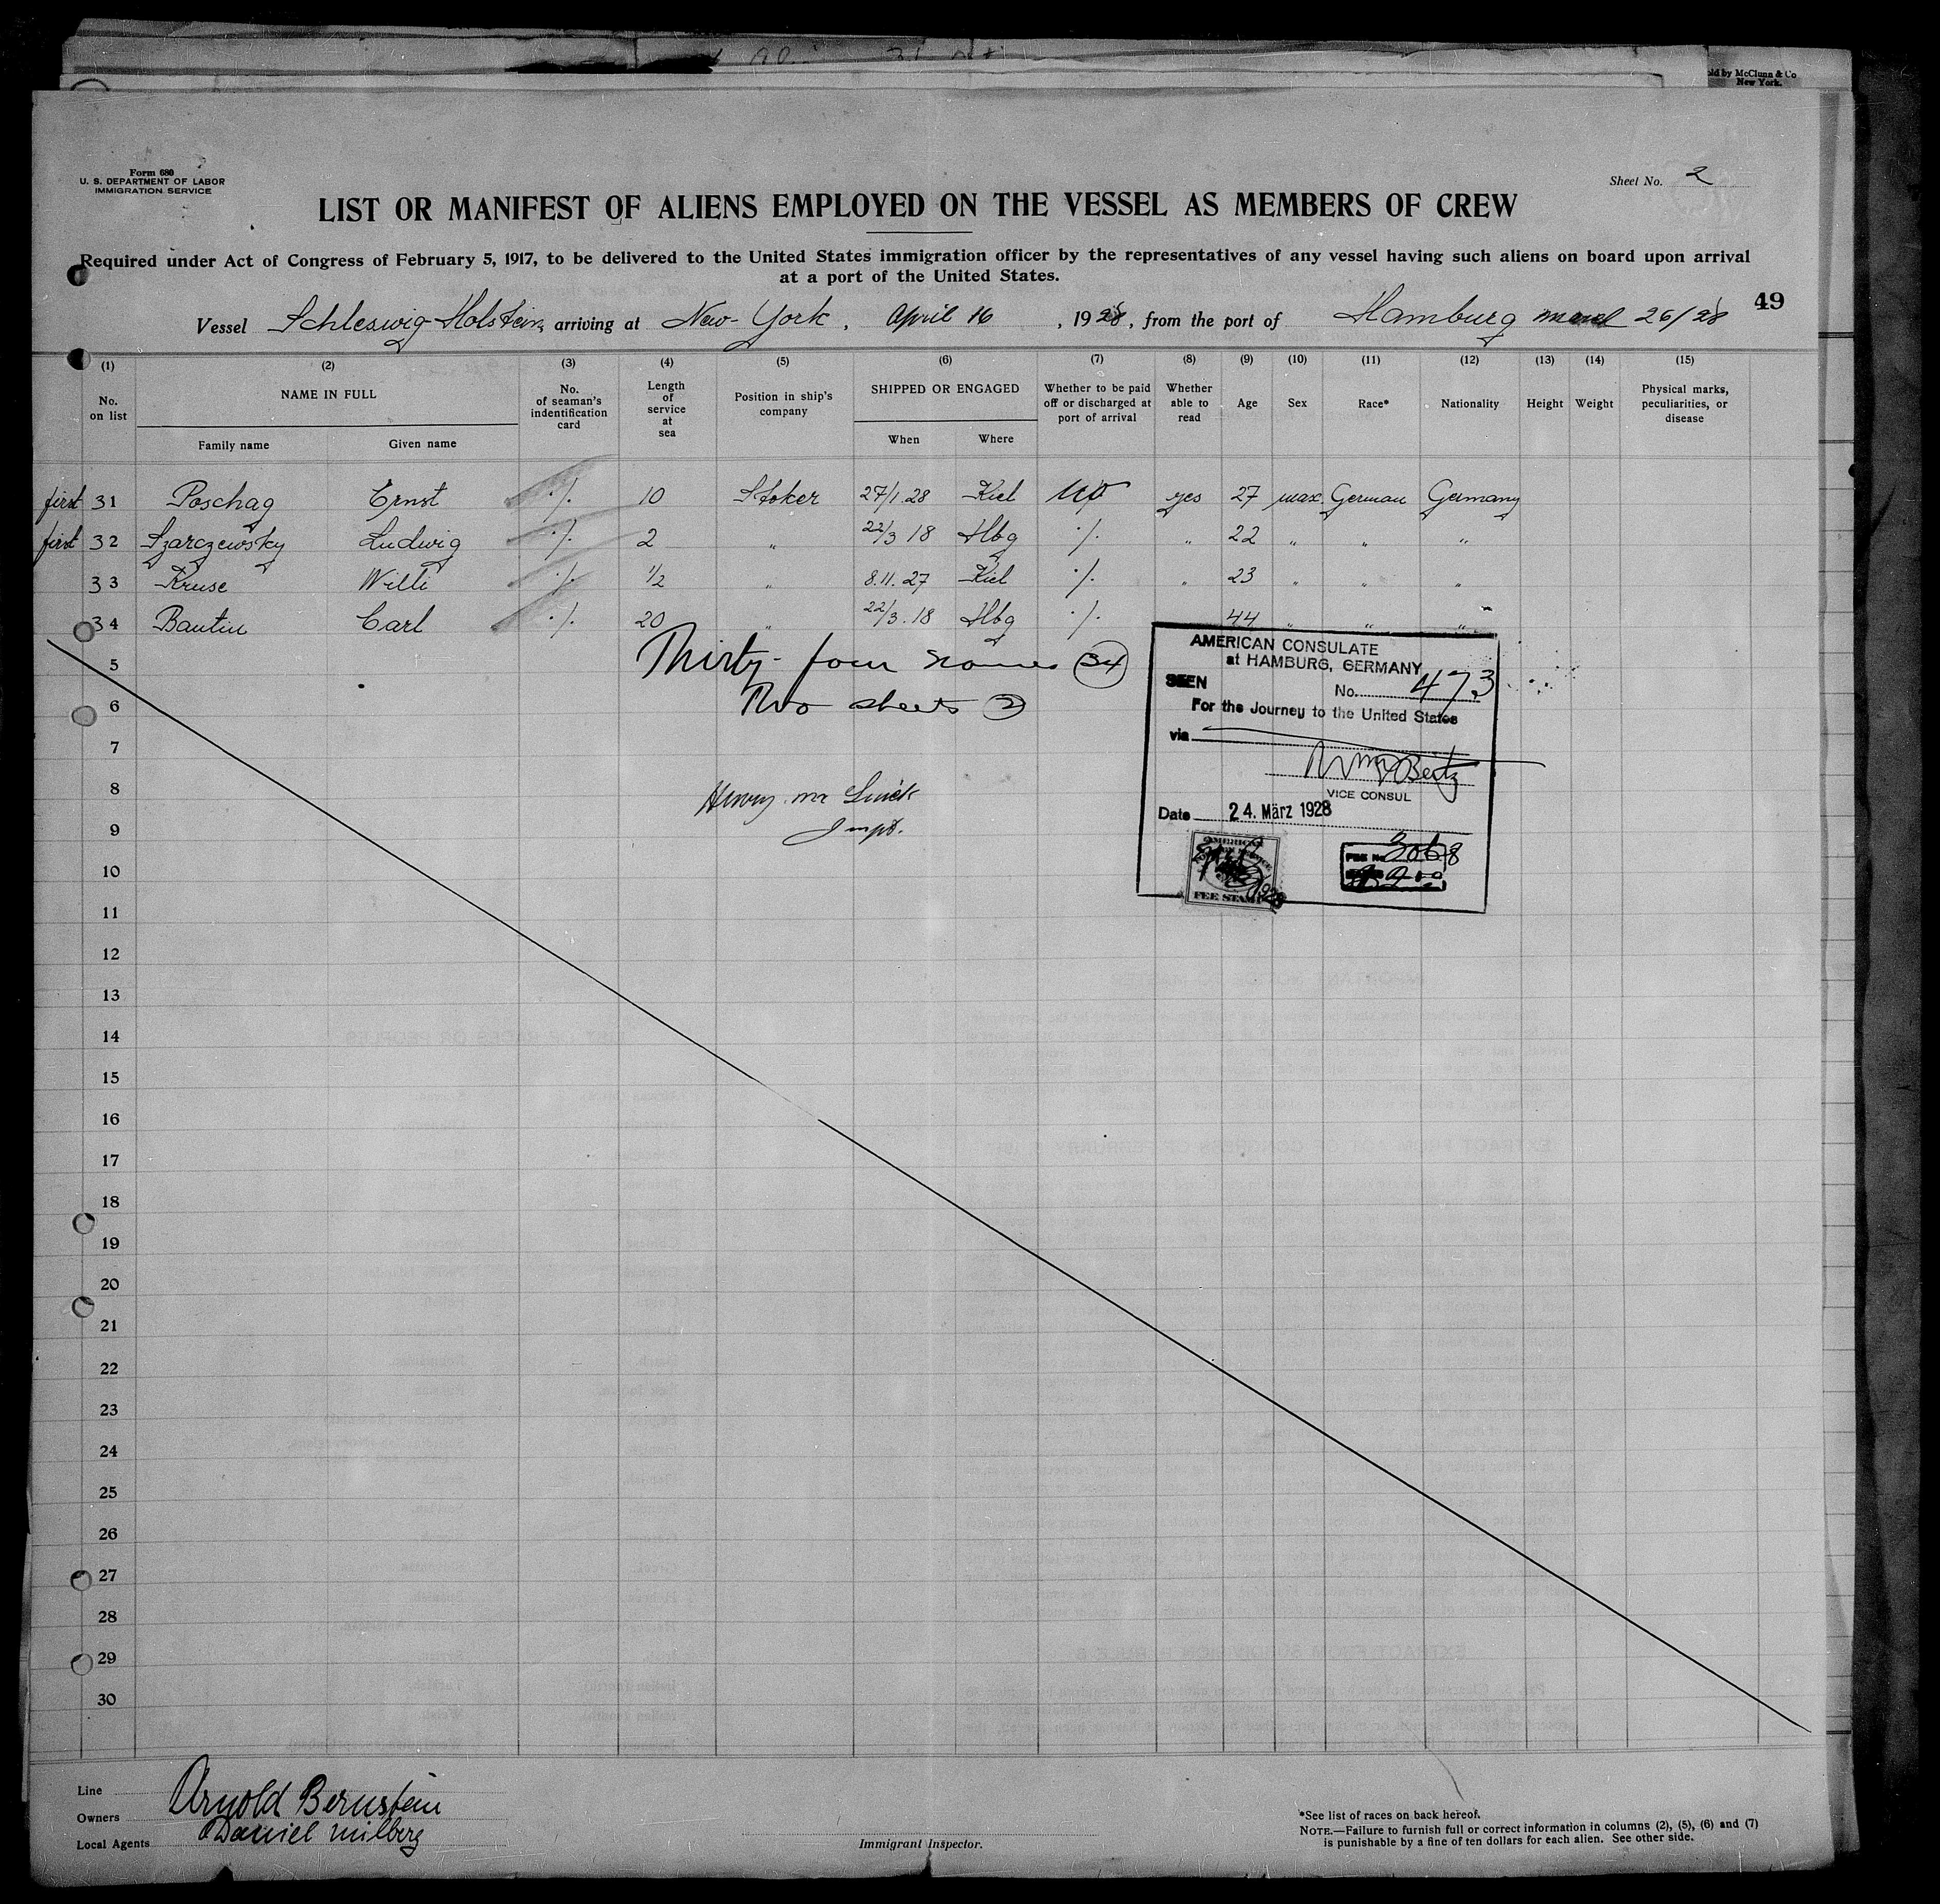 old by McClunn & Co
New York.
Form 680
U. S. DEPARTMENT OF LABOR
IMMIGRATION SERVICE
Sheet No. 2
LIST OR MANIFEST OF ALIENS EMPLOYED ON THE VESSEL AS MEMBERS OF CREW
Required under Act of Congress of February 5, 1917, to be delivered to the United States immigration officer by the representatives of any vessel having such aliens on board upon arrival
at a port of the United States.
49
Vessel Schleswig-Holstein, arriving at New-York, April 16, 1928, from the port of Hamburg March 26/28
(1) (2) (3) (4) (5) (6) (7) (8) (9) (10) (11) (12) (13) (14) (15)
No. on list
NAME IN FULL
Family name Given name
No. of seaman's indentification card
Length of service at sea
Position in ship's company
SHIPPED OR ENGAGED
When Where
Whether to be paid off or discharged at port of arrival
Whether able to read
Age
Sex
Race*
Nationality
Height
Weight
Physical marks, peculiarities, or disease
first 31 Poschag Ernst ./. 10 Stoker 27/1.28 Kiel no yes 27 max. German Germany
first 32 Szarczewsky Ludwig ./. 2 " 22/3 18 Hbg ./. " 22 " " "
33 Kruse Willi ./. 1/2 " 8.11.27 Kiel ./. " 23 " " "
34 Bautin Carl ./. 20 " 22/3.18 Hbg ./. 44 " " "
Thirty-four names 34
Two sheets 2
Henry
Inspt.
AMERICAN CONSULATE
at HAMBURG, GERMANY
SEEN
No. 473
For the Journey to the United States
via
VICE CONSUL
Date 24. März 1928
AMERICAN
FEE STAMP
1928
FEE No 3068
5
6
7
8
9
10
11
12
13
14
15
16
17
18
19
20
21
22
23
24
25
26
27
28
29
30
Line
Owners Arnold Bernstein
Local Agents Daniel Milberg
Immigrant Inspector.
*See list of races on back hereof.
NOTE.—Failure to furnish full or correct information in columns (2), (5), (6) and (7)
is punishable by a fine of ten dollars for each alien. See other side.